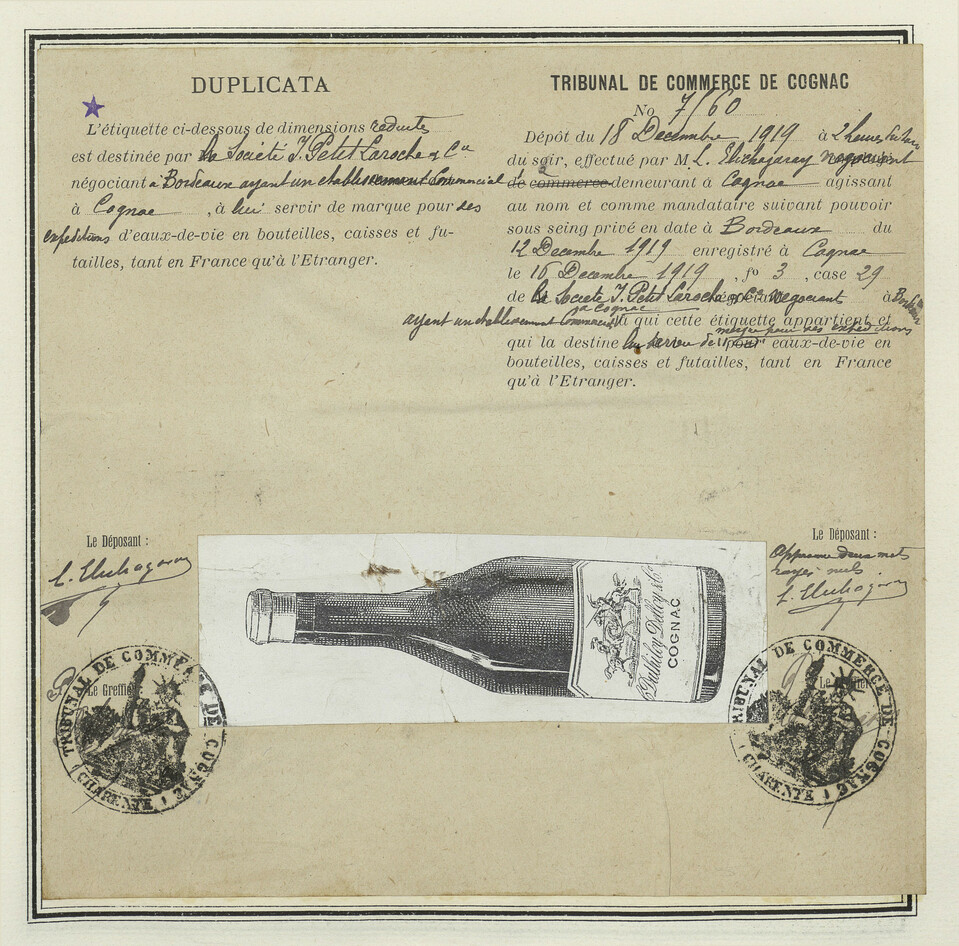 DUPLICATA
L'étiquette ci-dessous de dimensions reduites
est destinée par la Société J. Petit Laroche & Cie
négociant à Bordeaux ayant un etablissement Commercial
à Cognac, à lui servir de marque pour ses
expeditions d'eaux-de-vie en bouteilles, caisses et fu-
tailles, tant en France qu'à l'Etranger.
TRIBUNAL DE COMMERCE DE COGNAC
No 7/60
Dépôt du 18 Decembre 1919 à 2 heures
du soir, effectué par M L. Etchagaray negociant
de commerce demeurant à Cognac agissant
au nom et comme mandataire suivant pouvoir
sous seing privé en date à Bordeaux du
12 Decembre 1919 enregistré à Cognac
le 16 Decembre 1919, fo 3, case 29
de la Societe J. Petit Laroche & Cie Negociant à Bordeaux
ayant un etablissement Commercial à Cognac à qui cette étiquette appartient et
qui la destine à lui servir de marque pour ses expéditions d' eaux-de-vie en
bouteilles, caisses et futailles, tant en France
qu'à l'Etranger.
Le Déposant :
L. Etchagaray
Le Déposant :
Approuvé deux mots
rayés nuls
L. Etchagaray
COGNAC
Le Greffier
TRIBUNAL DE COMMERCE DE COGNAC
CHARENTE
Le Greffier
TRIBUNAL DE COMMERCE DE COGNAC
CHARENTE